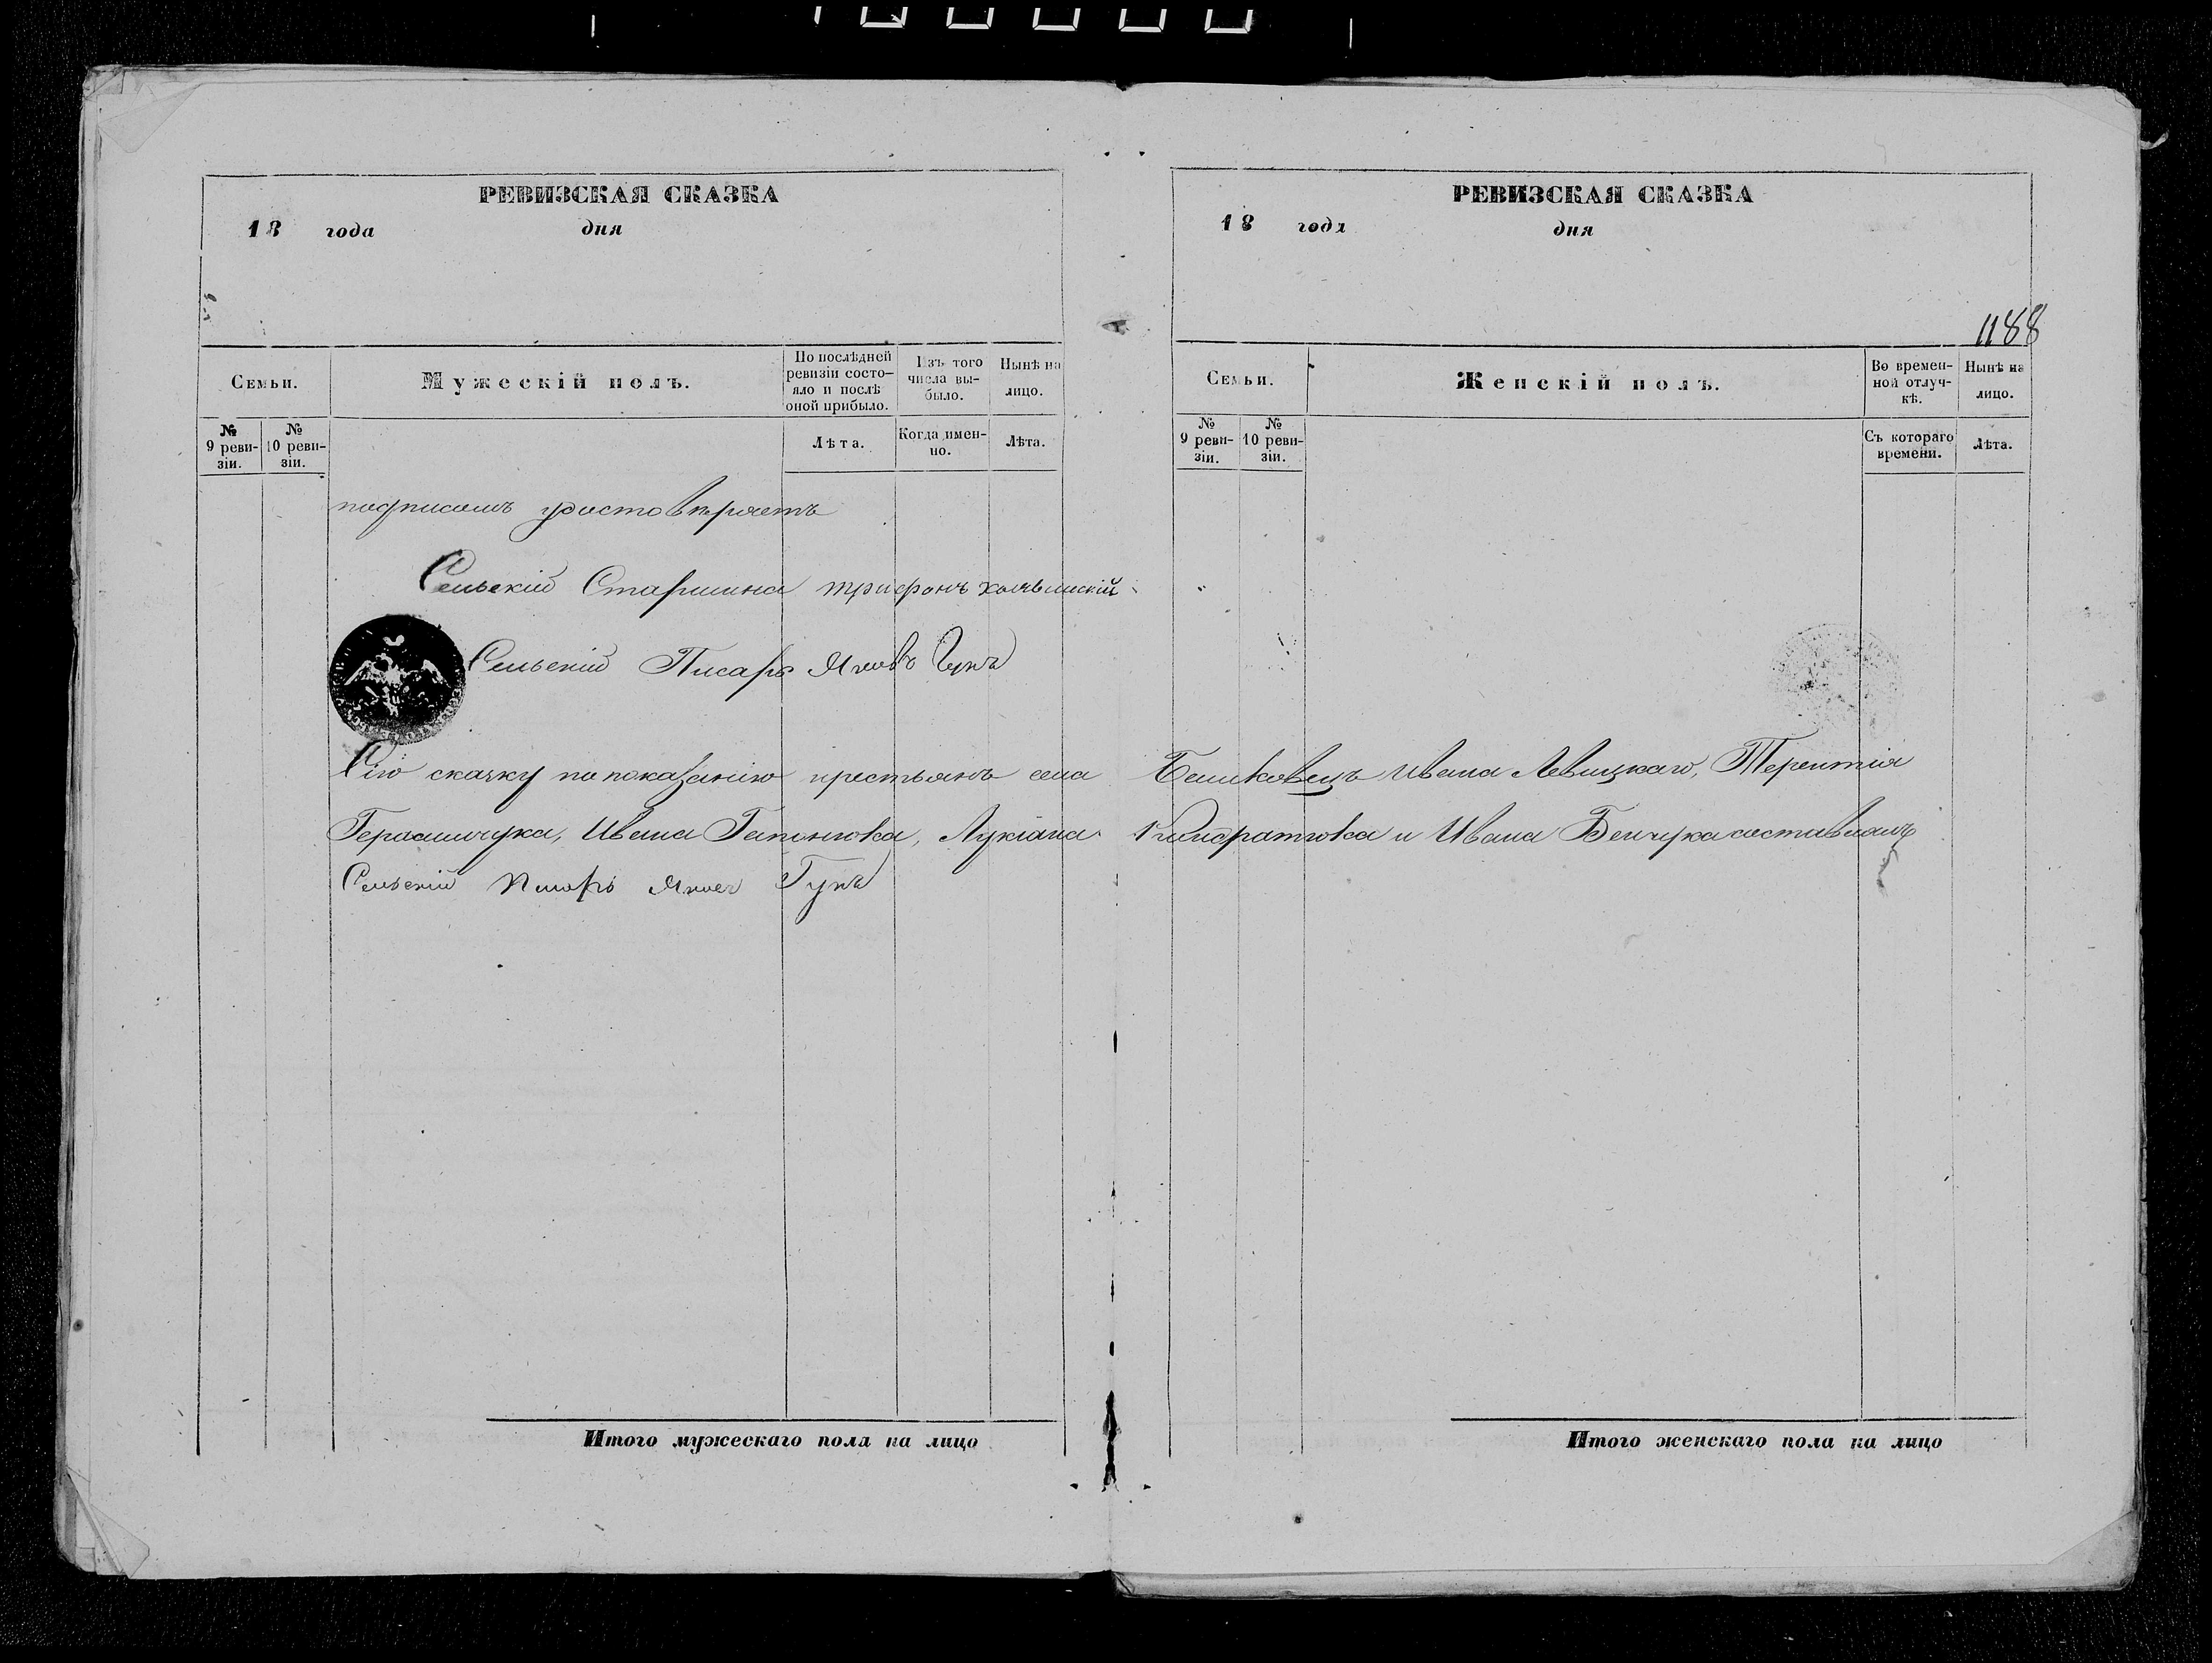 РЕВИЗСКАЯ СКАЗКА
18 года дня
Семьи.
Мужескій полъ.
По послѣдней ревизіи состо-яло и послѣ оной прибыло.
Изъ того числа вы-было.
Нынѣ на лицо.
№ 9 реви-зіи.
№ 10 реви-зіи.
Лѣта.
Когда имен-но.
Лѣта.
подписомъ удостовѣряетъ
Сельскій Старшина Трифонъ
Сельскій Писарь Яковъ Гукъ
Сію сказку по показанію крестьянъ села
Герасимчука, Ивана Гапонюка, Лукіана
Сельскій Писарь Яковъ Гукъ
Итого мужескаго пола на лицо
РЕВИЗСКАЯ СКАЗКА
18 года дня
1188
Семьи.
Женскій полъ.
Во времен-ной отлуч-кѣ.
Нынѣ на лицо.
№ 9 реви-зіи.
№ 10 реви-зіи.
Съ котораго времени.
Лѣта.
Ивана Левицкаго, Терентія
и Ивана Бенчука составилъ
Итого женскаго пола на лицо